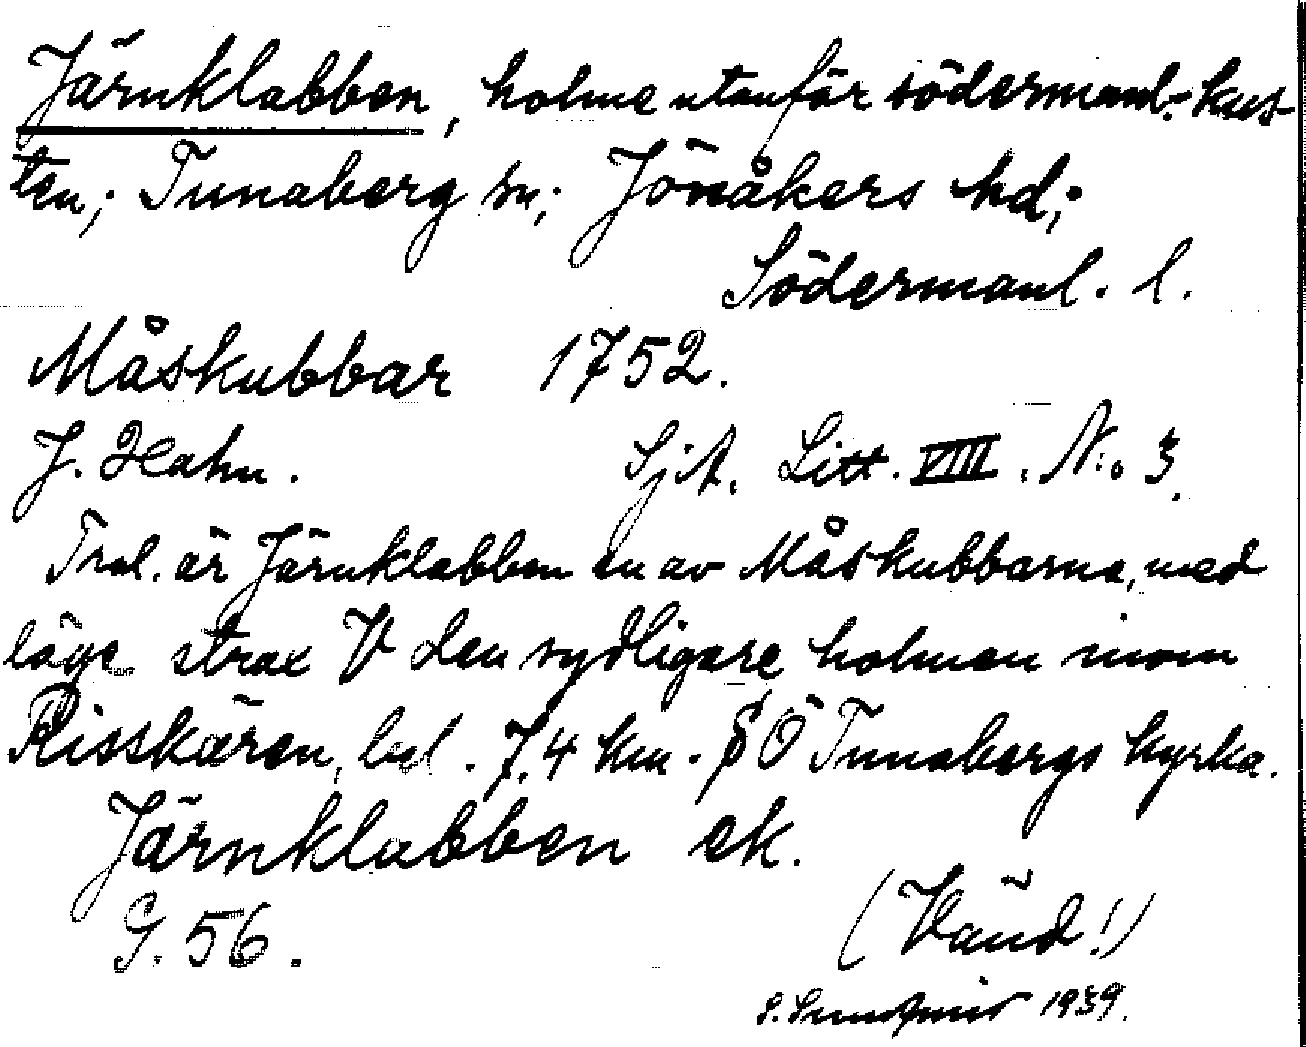 Järnklabben, holme utanför södermanl. kus-
ten; Tunaberg sn; Jönåkers hd;
Södermanl. l.
Måskubbar 1752.
J. Hahn. Sjk. Litt. VIIII. N:o 3.
Trol. är Järnklabben en av Måskubbarna, med
läge strax V den sydligare holmen inom
Risskären, bel. 7,4 km. SÖ Tunabergs kyrka.
Järnklabben ek.
G. 56. (Vänd!)
S. Sundqvist 1939.